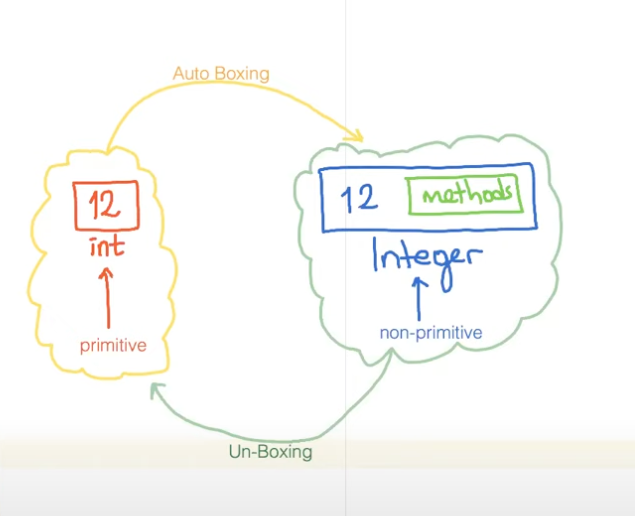 Auto Boxing
12
int
primitive
12 methods
Integer
non-primitive
Un-Boxing